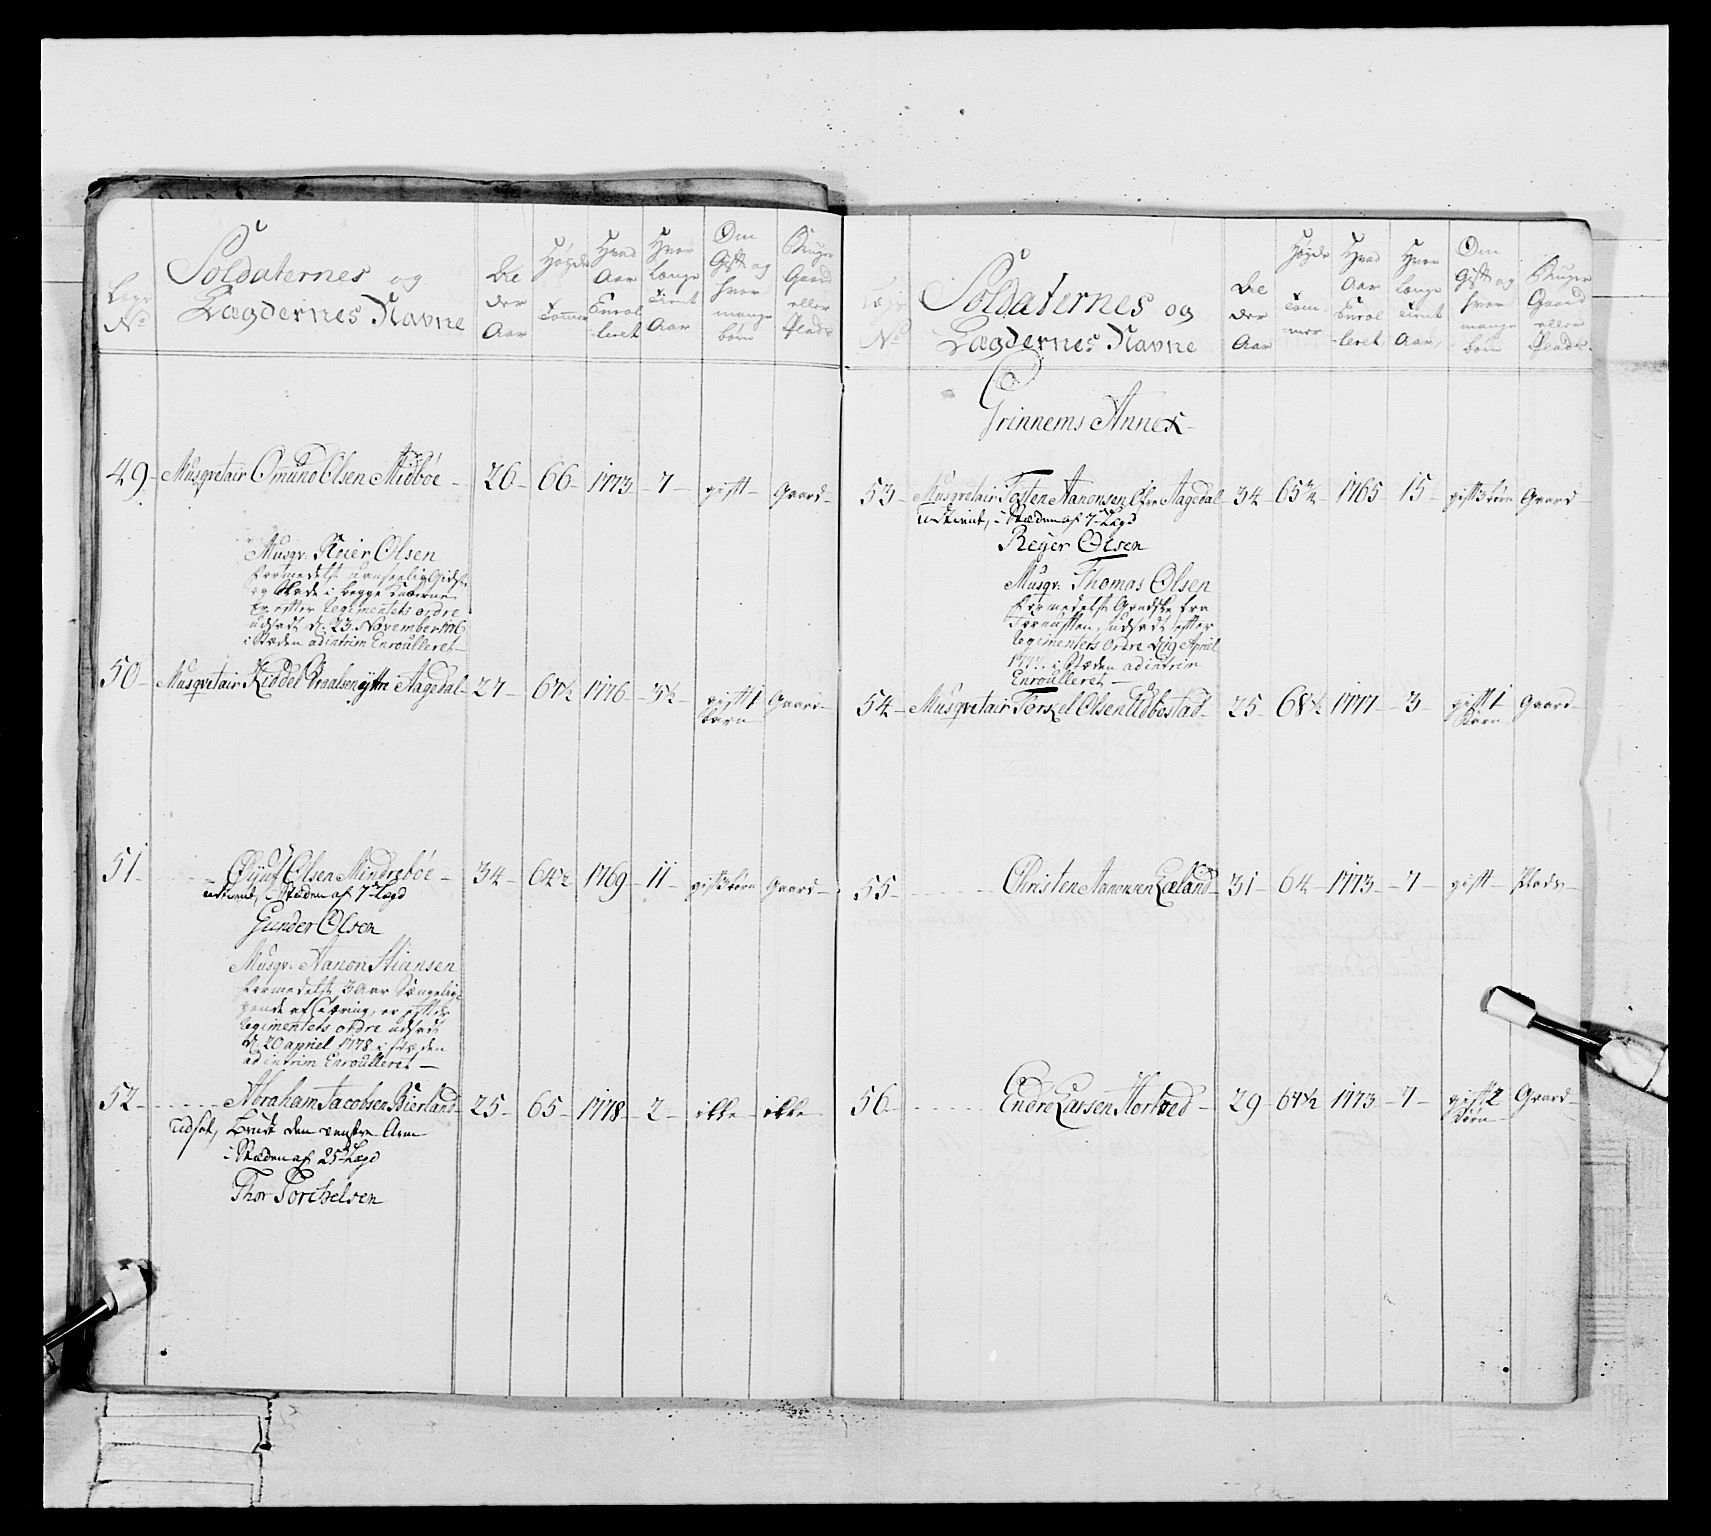 Lægs No
Soldaternes og
Lægdernes Navne
Ældер Aar
Høyde Tommer
Hvad Aar Enrolleret
Hvor Længe tient Aar
Om Gift og hvor mange børn
Bruger Gaard eller Plads
49 - Musqvetair Omund Olsen Midbøe - 26 - 66 - 1773 - 7 - gift - Gaard -
Musqv: Reier Olsen
formedelst
og Skade i begge Knæerne
er efter Regimentets ordre
udsadt d. 23 November 1776
i Stæden ad intrim Enroulleret -
50 - Musqvetair Kiddel Graalsen yttre Aagedal - 27 - 67½ - 1776 - 3½ - gift 1 børn - Gaard -
51 - Øyuf Olsen Mindrebøe - 34 - 64½ - 1769 - 11 - gift 3 børn - Gaard -
udtient, i Stæden af 7de Lægd
Gunder Olsen
Musqv: Aanon Stiansen
formedelst 3 Aar Sængelig-
gende af Sværing, er efter
Regimentets ordre udsadt
d. 20 april 1778 i stæden
ad intrim Enroulleret -
52 - Abraham Jacobsen Bierland - 25 - 65 - 1778 - 2 - ikke - ikke
udsat, Brudt den venstre Arm
i Stæden af 25 Lægd
Thor Torchelsen
Lægs No
Soldaternes og
Lægdernes Navne
Ælder Aar
Høyde Tommer
Hvad Aar Enrolleret
Hvor Længe tient Aar
Om Gift og hvor mange børn
Bruger Gaard eller Plads
Grinnems Annex
53 - Musqvetair Tosten Aanonsen Øfre Aagedal - 34 - 65¾ - 1765 - 15 - gift 3 børn - Gaard
udtient, i Stæden af 7de Lægd
Reyer Olsen
Musqv: Thomas Olsen
formedelst Gandske fra
Fornuften, udsadt efter
Regimentets ordre d. 19 April
1777 i Stæden ad intrim
Enroulleret -
54 - Musqvetair Terkel Olsen Udbostad - 25 - 68½ - 1777 - 3 - gift 1 Barn - Gaard -
55 - Christen Aanonsen Læland - 31 - 64 - 1773 - 7 - gift - Plads -
56 - Endre Larsen Hortved - 29 - 67½ - 1773 - 7 - gift 2 Børn - Gaard -